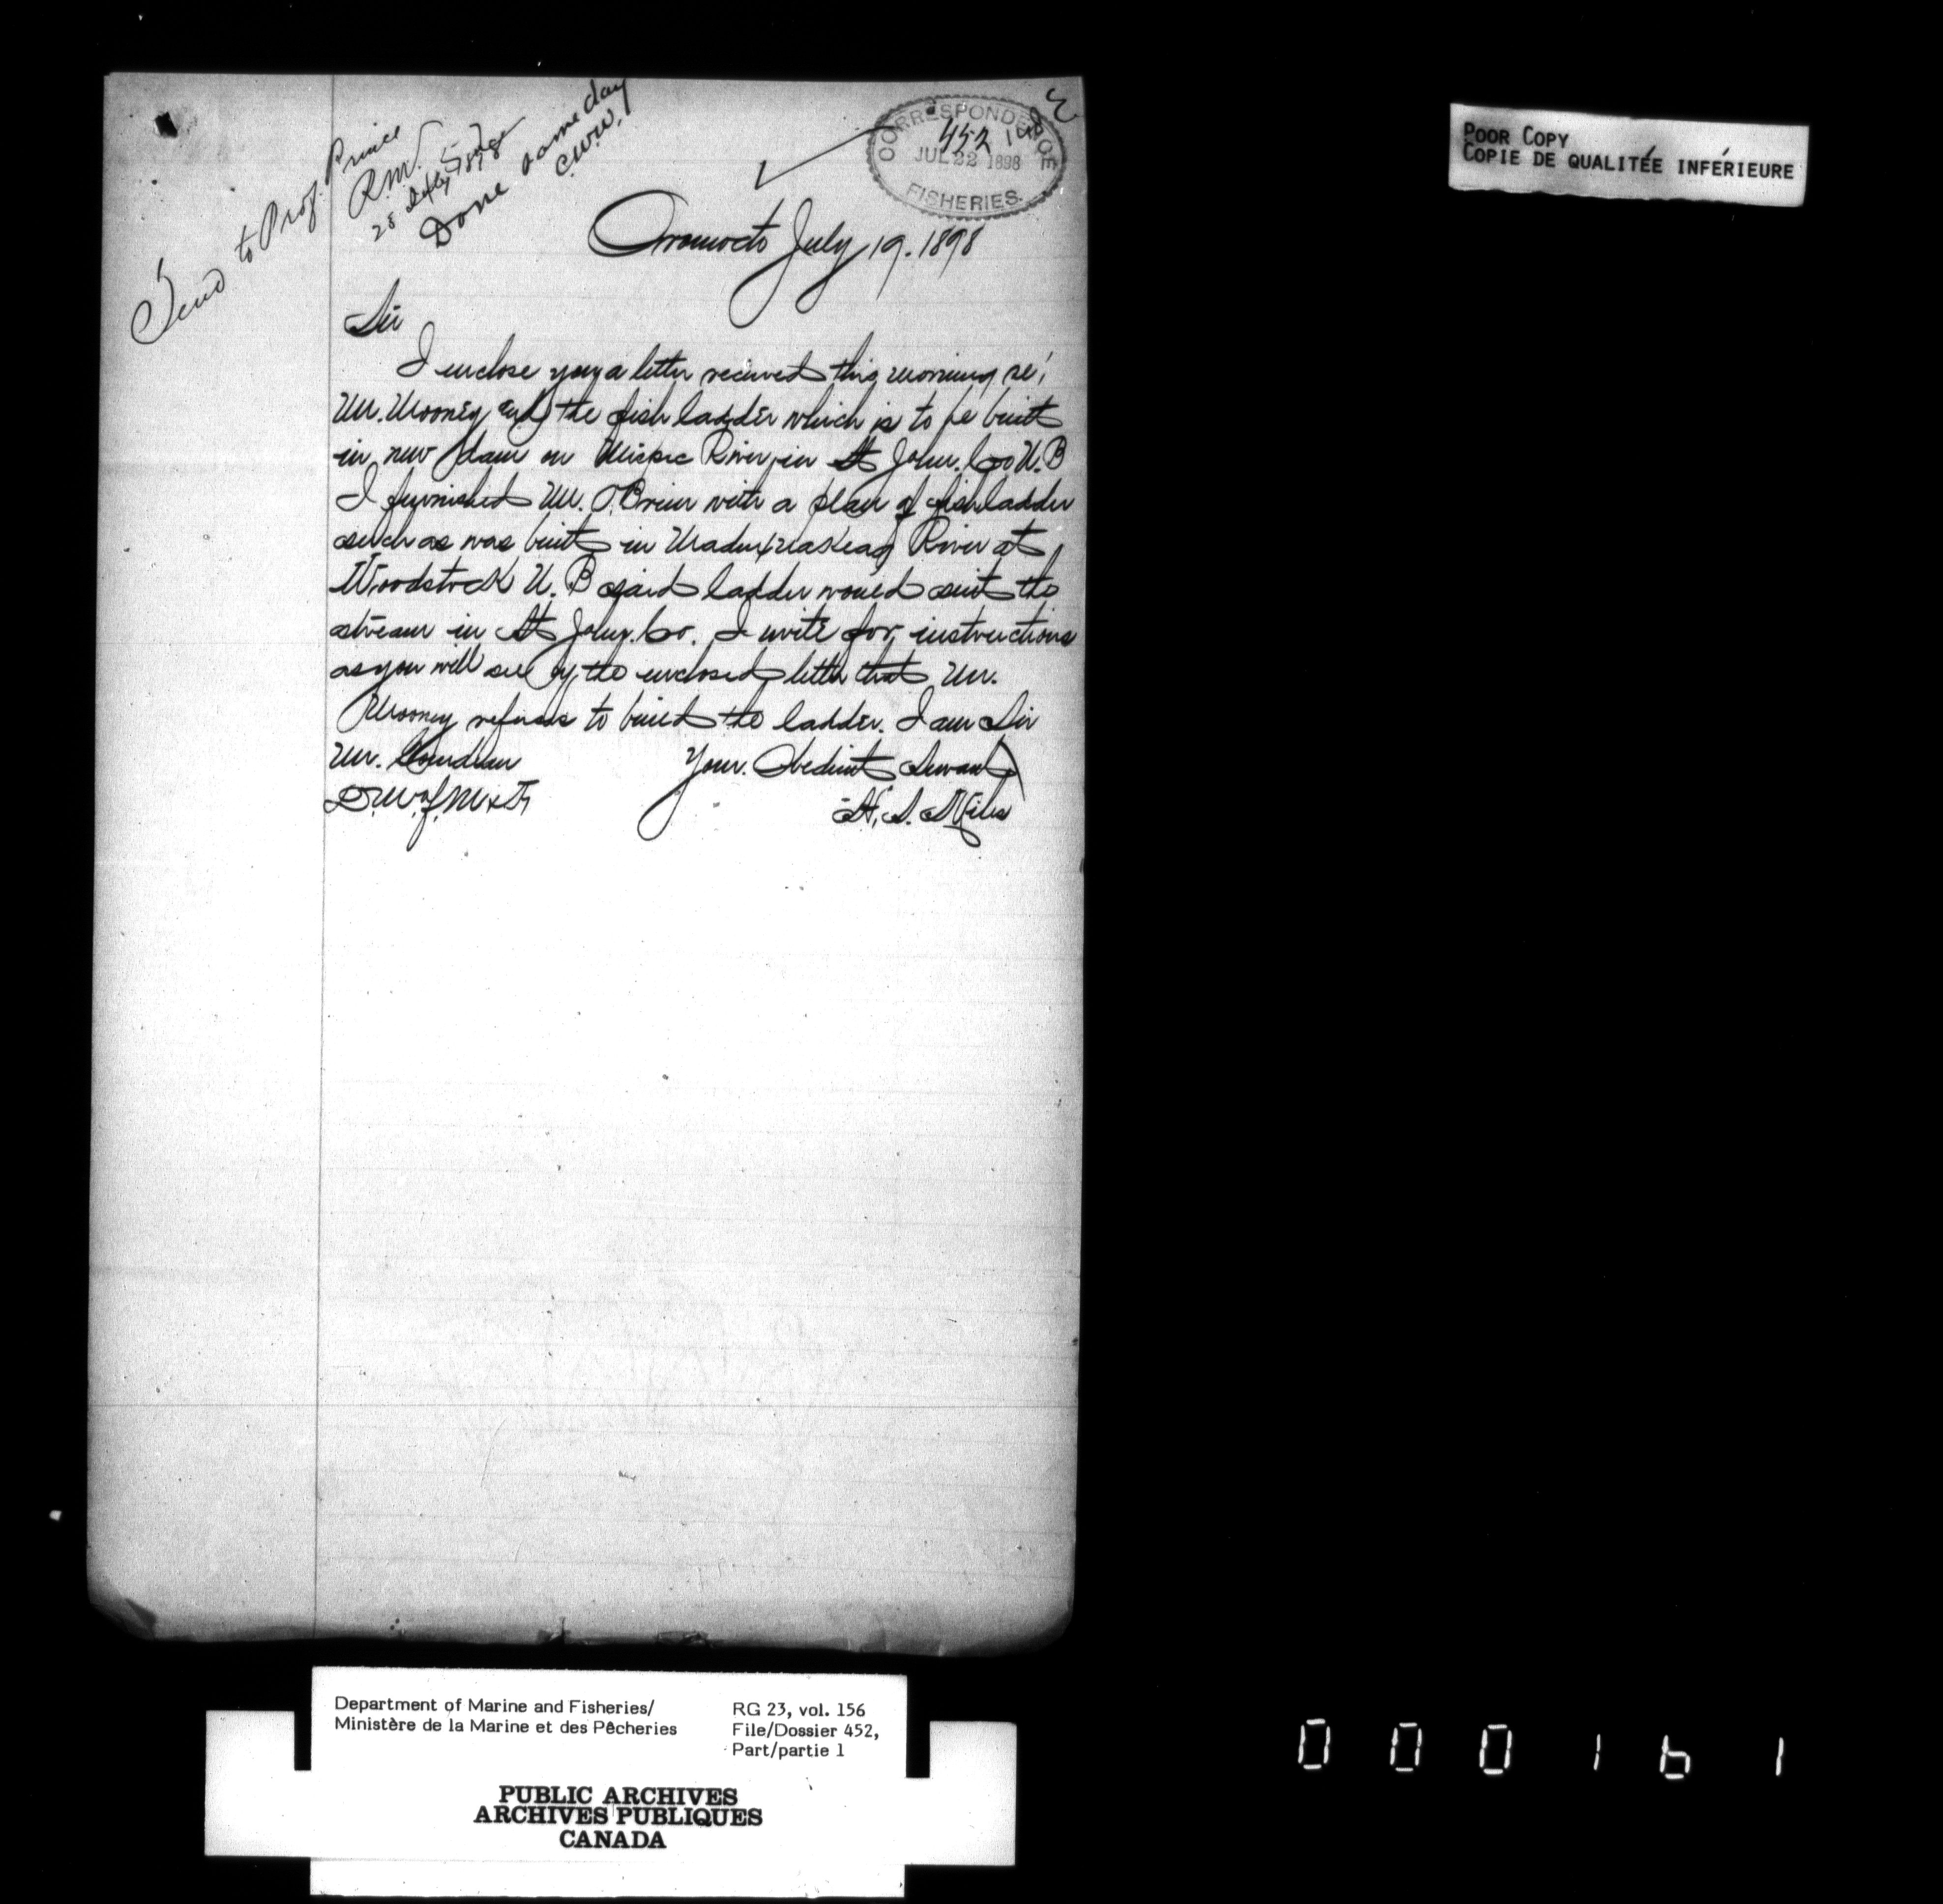 Send to Prof. Prince
R.N.V.
28 1898
Done same day
C.W.W.
CORRESPONDENCE
452
JUL 22 1898
FISHERIES.
Oromocto July 19. 1898
Sir
I enclose you a letter received this morning re,
Mr. Mooney and the fish ladder which is to be built
in new dam on Mispec River in St John. Co N.B
I furnished Mr. O'Brien with a plan of fish ladder
such as was built in River at
Woodstock N.B said ladder would suit the
stream in St John. Co. I write for instructions
as you will see by the enclosed letter that Mr.
Mooney refuses to build the ladder. I am Sir
Mr. Gourdeau Your. Obedient Servant
D.M. of M & F H. S. Miles
POOR COPY
COPIE DE QUALITÉE INFÉRIEURE
Department of Marine and Fisheries/
Ministère de la Marine et des Pêcheries
RG 23, vol. 156
File/Dossier 452,
Part/partie 1
PUBLIC ARCHIVES
ARCHIVES PUBLIQUES
CANADA
000161